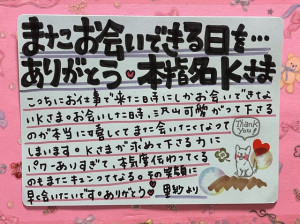 またお会いできる日を…
ありがとう♥本指名Kさま
こっちにお仕事で来た時にしかお会いできな
いKさま。お会いした時、沢山可愛がって下さる
のが本当に嬉しくてまた会いたくなって
しまいます。Kさまが求めて下さる力に
パワーありすぎて、本気度伝わってくる
のもまたキュンってなる。その笑顔に
早く会いたいです。ありがとう♥
里紗より
Thank You!